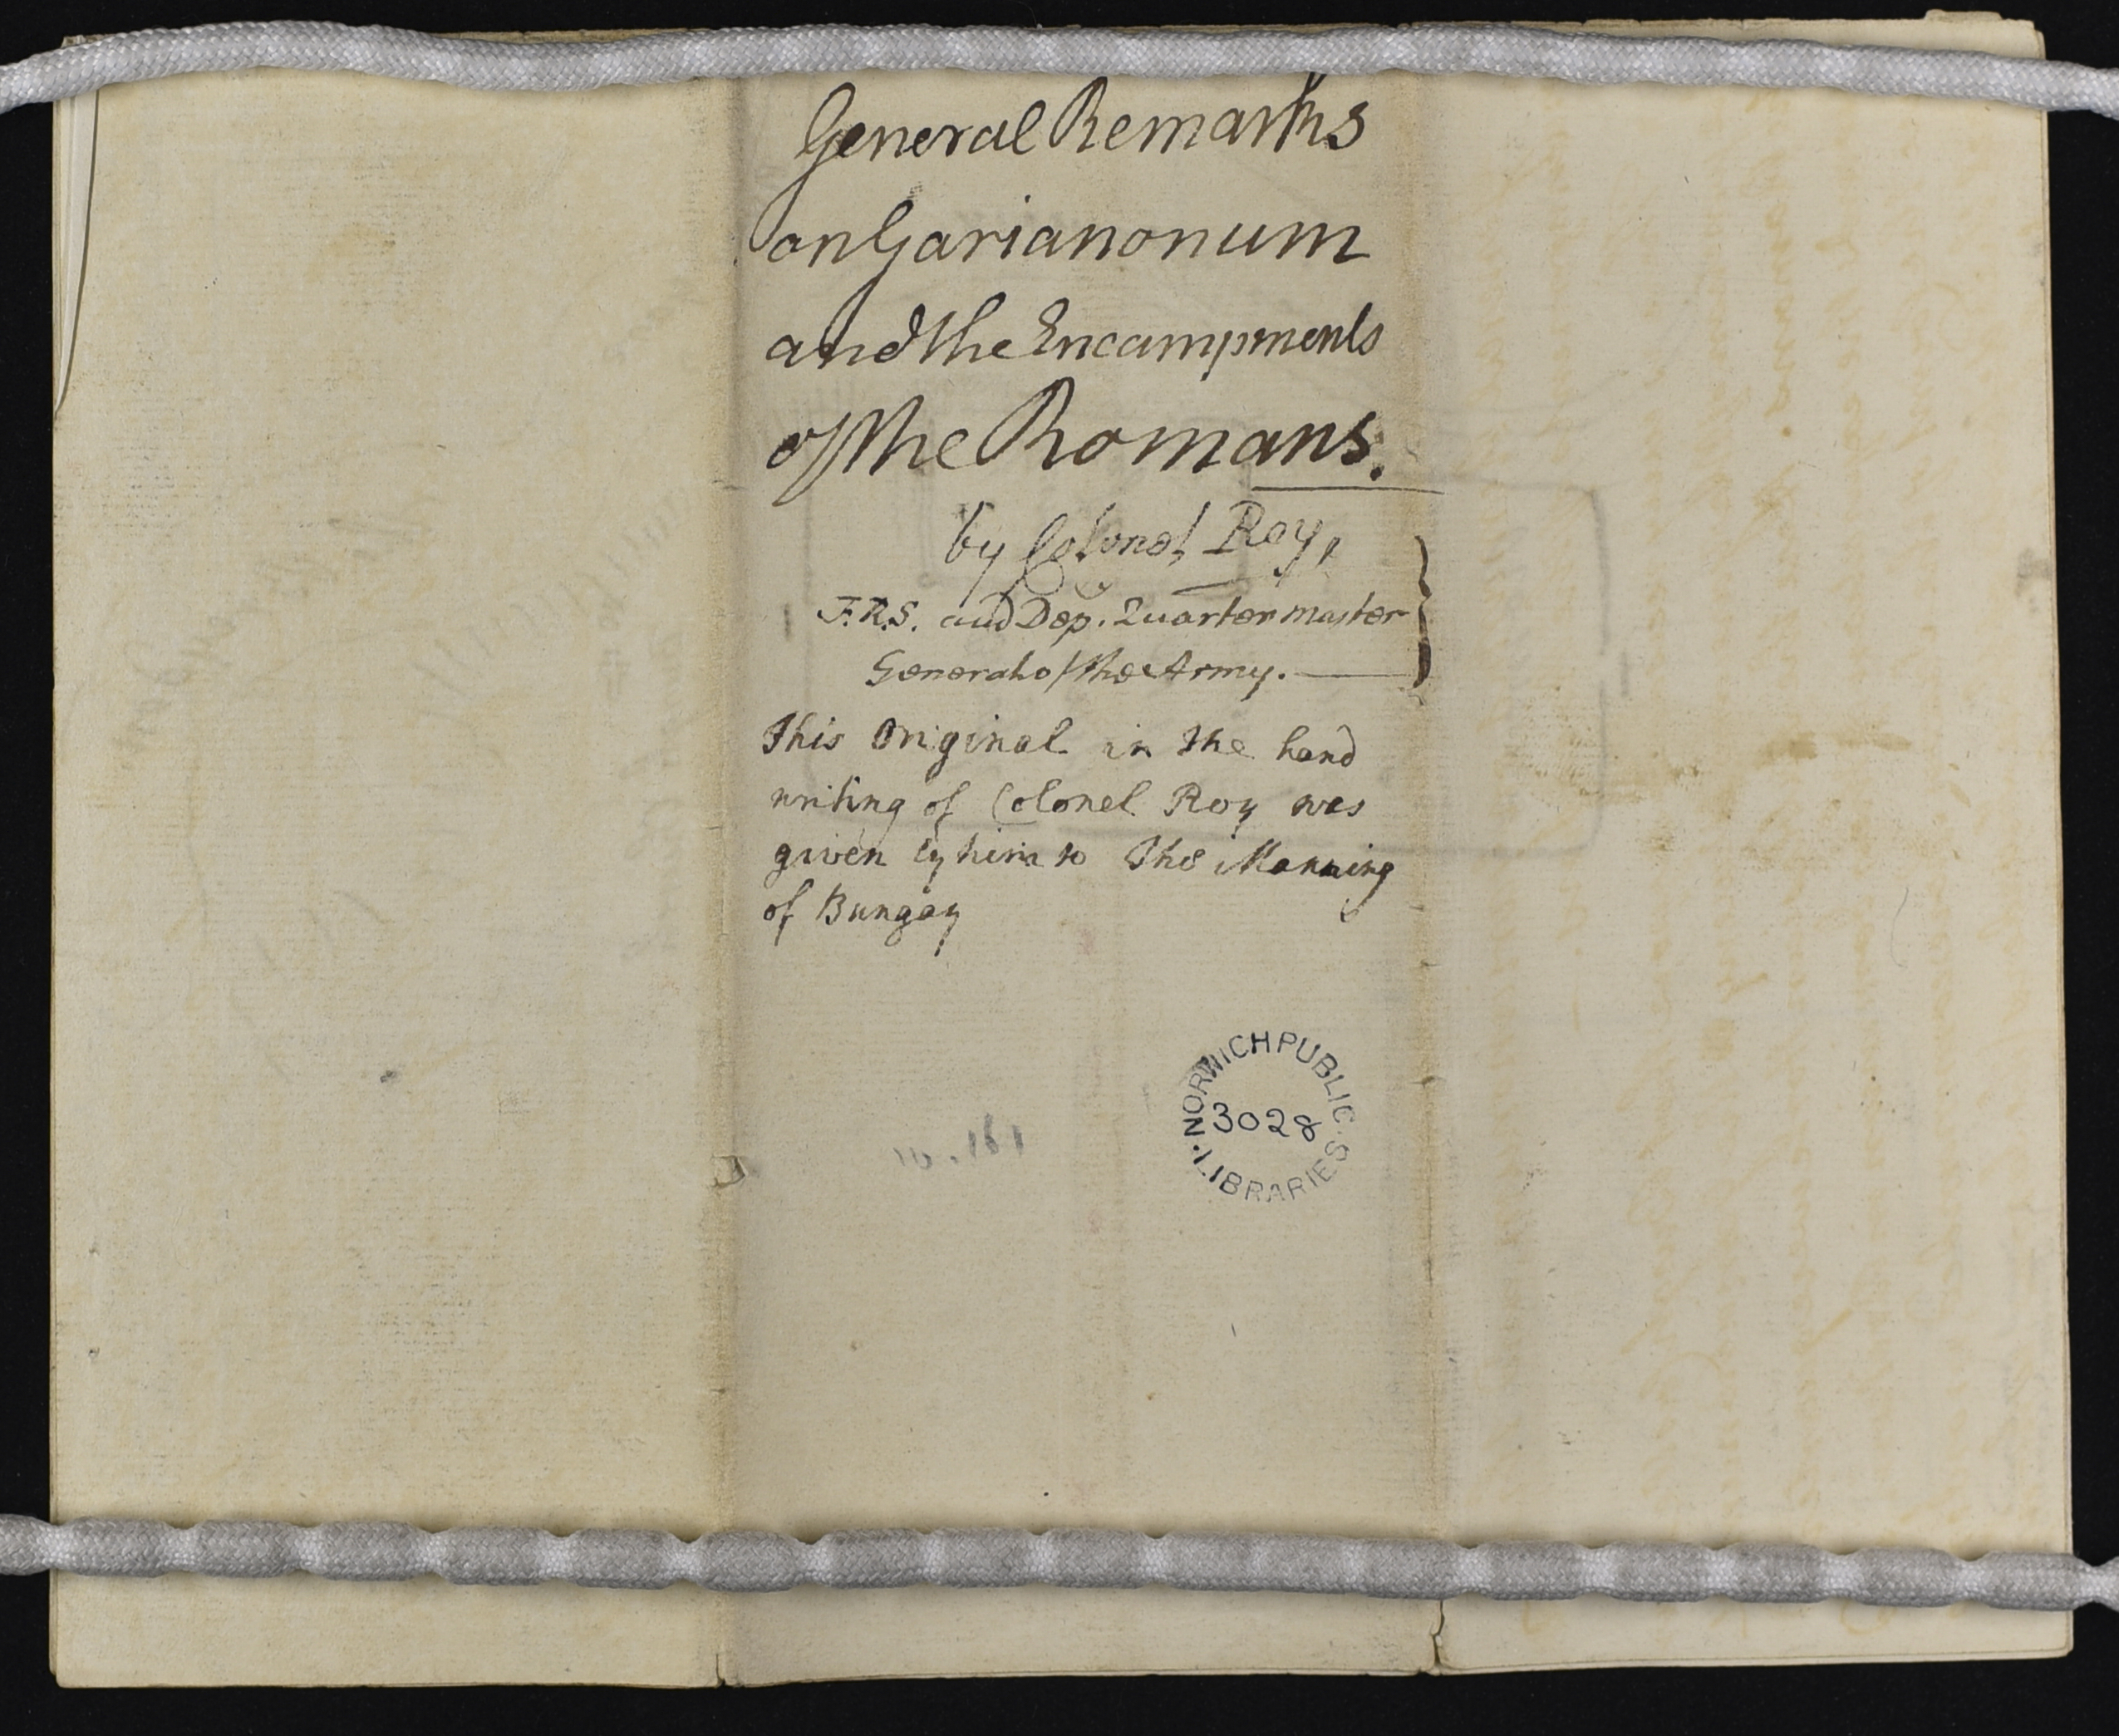 General Remarks
on Garianonum
and the Encampments
of the Romans.
by Colonel Roy,
F.R.S. and Dep. Quartermaster
General of the Army.
This Original in the hand
writing of Colonel Roy was
given by him to Thos Manning
of Bungay
NORWICH PUBLIC LIBRARIES
3028